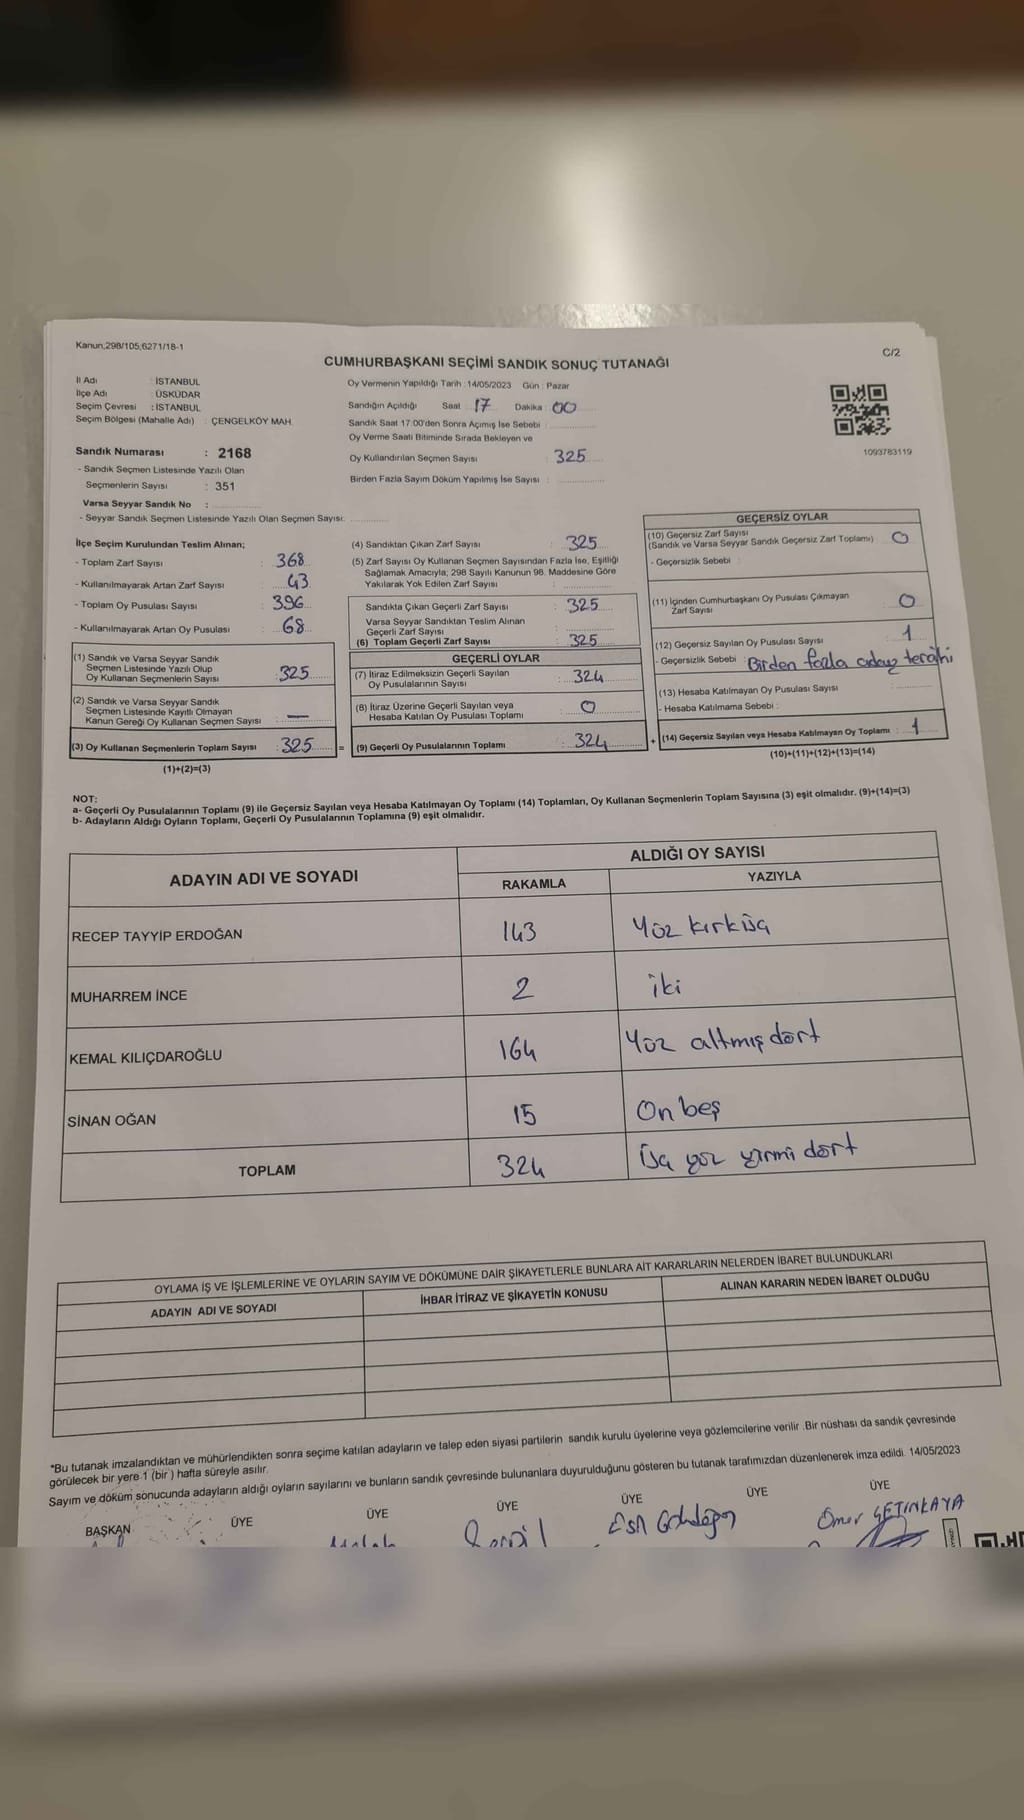 Kanun;298/105;6271/18-1
C/2
CUMHURBAŞKANI SEÇİMİ SANDIK SONUÇ TUTANAĞI
İl Adı : İSTANBUL
İlçe Adı : ÜSKÜDAR
Seçim Çevresi : İSTANBUL
Seçim Bölgesi (Mahalle Adı) : ÇENGELKÖY MAH.
Oy Vermenin Yapıldığı Tarih : 14/05/2023 Gün : Pazar
Sandığın Açıldığı Saat : 17 Dakika : 00
Sandık Saat 17.00'den Sonra Açımış İse Sebebi :
Oy Verme Saati Bitiminde Sırada Bekleyen ve
Oy Kullandırılan Seçmen Sayısı : 325
Birden Fazla Sayım Döküm Yapılmış İse Sayısı :
1093783119
Sandık Numarası : 2168
- Sandık Seçmen Listesinde Yazılı Olan
Seçmenlerin Sayısı : 351
Varsa Seyyar Sandık No :
- Seyyar Sandık Seçmen Listesinde Yazılı Olan Seçmen Sayısı:
İlçe Seçim Kurulundan Teslim Alınan;
- Toplam Zarf Sayısı : 368
- Kullanılmayarak Artan Zarf Sayısı : 43
- Toplam Oy Pusulası Sayısı : 396
- Kullanılmayarak Artan Oy Pusulası : 68
(1) Sandık ve Varsa Seyyar Sandık
Seçmen Listesinde Yazılı Olup
Oy Kullanan Seçmenlerin Sayısı : 325
(2) Sandık ve Varsa Seyyar Sandık
Seçmen Listesinde Kayıtlı Olmayan
Kanun Gereği Oy Kullanan Seçmen Sayısı : —
(3) Oy Kullanan Seçmenlerin Toplam Sayısı : 325 =
(1)+(2)=(3)
(4) Sandıktan Çıkan Zarf Sayısı : 325
(5) Zarf Sayısı Oy Kullanan Seçmen Sayısından Fazla İse, Eşitliği
Sağlamak Amacıyla; 298 Sayılı Kanunun 98. Maddesine Göre
Yakılarak Yok Edilen Zarf Sayısı :
Sandıkta Çıkan Geçerli Zarf Sayısı : 325
Varsa Seyyar Sandıktan Teslim Alınan
Geçerli Zarf Sayısı :
(6) Toplam Geçerli Zarf Sayısı : 325
GEÇERLİ OYLAR
(7) İtiraz Edilmeksizin Geçerli Sayılan
Oy Pusulalarının Sayısı : 324
(8) İtiraz Üzerine Geçerli Sayılan veya
Hesaba Katılan Oy Pusulası Toplamı : 0
(9) Geçerli Oy Pusulalarının Toplamı : 324 +
GEÇERSİZ OYLAR
(10) Geçersiz Zarf Sayısı
(Sandık ve Varsa Seyyar Sandık Geçersiz Zarf Toplamı) : 0
- Geçersizlik Sebebi :
(11) İçinden Cumhurbaşkanı Oy Pusulası Çıkmayan
Zarf Sayısı : 0
(12) Geçersiz Sayılan Oy Pusulası Sayısı : 1
- Geçersizlik Sebebi : Birden fazla aday tercihi
(13) Hesaba Katılmayan Oy Pusulası Sayısı :
- Hesaba Katılmama Sebebi :
(14) Geçersiz Sayılan veya Hesaba Katılmayan Oy Toplamı : 1
(10)+(11)+(12)+(13)=(14)
NOT:
a- Geçerli Oy Pusulalarının Toplamı (9) ile Geçersiz Sayılan veya Hesaba Katılmayan Oy Toplamı (14) Toplamları, Oy Kullanan Seçmenlerin Toplam Sayısına (3) eşit olmalıdır. (9)+(14)=(3)
b- Adayların Aldığı Oyların Toplamı, Geçerli Oy Pusulalarının Toplamına (9) eşit olmalıdır.
ADAYIN ADI VE SOYADI
ALDIĞI OY SAYISI
RAKAMLA YAZIYLA
RECEP TAYYİP ERDOĞAN 143 Yüz kırküç
MUHARREM İNCE 2 iki
KEMAL KILIÇDAROĞLU 164 Yüz altmış dört
SİNAN OĞAN 15 On beş
TOPLAM 324 Üç yüz yirmi dört
OYLAMA İŞ VE İŞLEMLERİNE VE OYLARIN SAYIM VE DÖKÜMÜNE DAİR ŞİKAYETLERLE BUNLARA AİT KARARLARIN NELERDEN İBARET BULUNDUKLARI
ADAYIN ADI VE SOYADI İHBAR İTİRAZ VE ŞİKAYETİN KONUSU ALINAN KARARIN NEDEN İBARET OLDUĞU
*Bu tutanak imzalandıktan ve mühürlendikten sonra seçime katılan adayların ve talep eden siyasi partilerin sandık kurulu üyelerine veya gözlemcilerine verilir .Bir nüshası da sandık çevresinde
görülecek bir yere 1 (bir ) hafta süreyle asılır.
Sayım ve döküm sonucunda adayların aldığı oyların sayılarını ve bunların sandık çevresinde bulunanlara duyurulduğunu gösteren bu tutanak tarafımızdan düzenlenerek imza edildi. 14/05/2023
BAŞKAN ÜYE ÜYE ÜYE ÜYE ÜYE ÜYE
Ömer ÇETİNKAYA